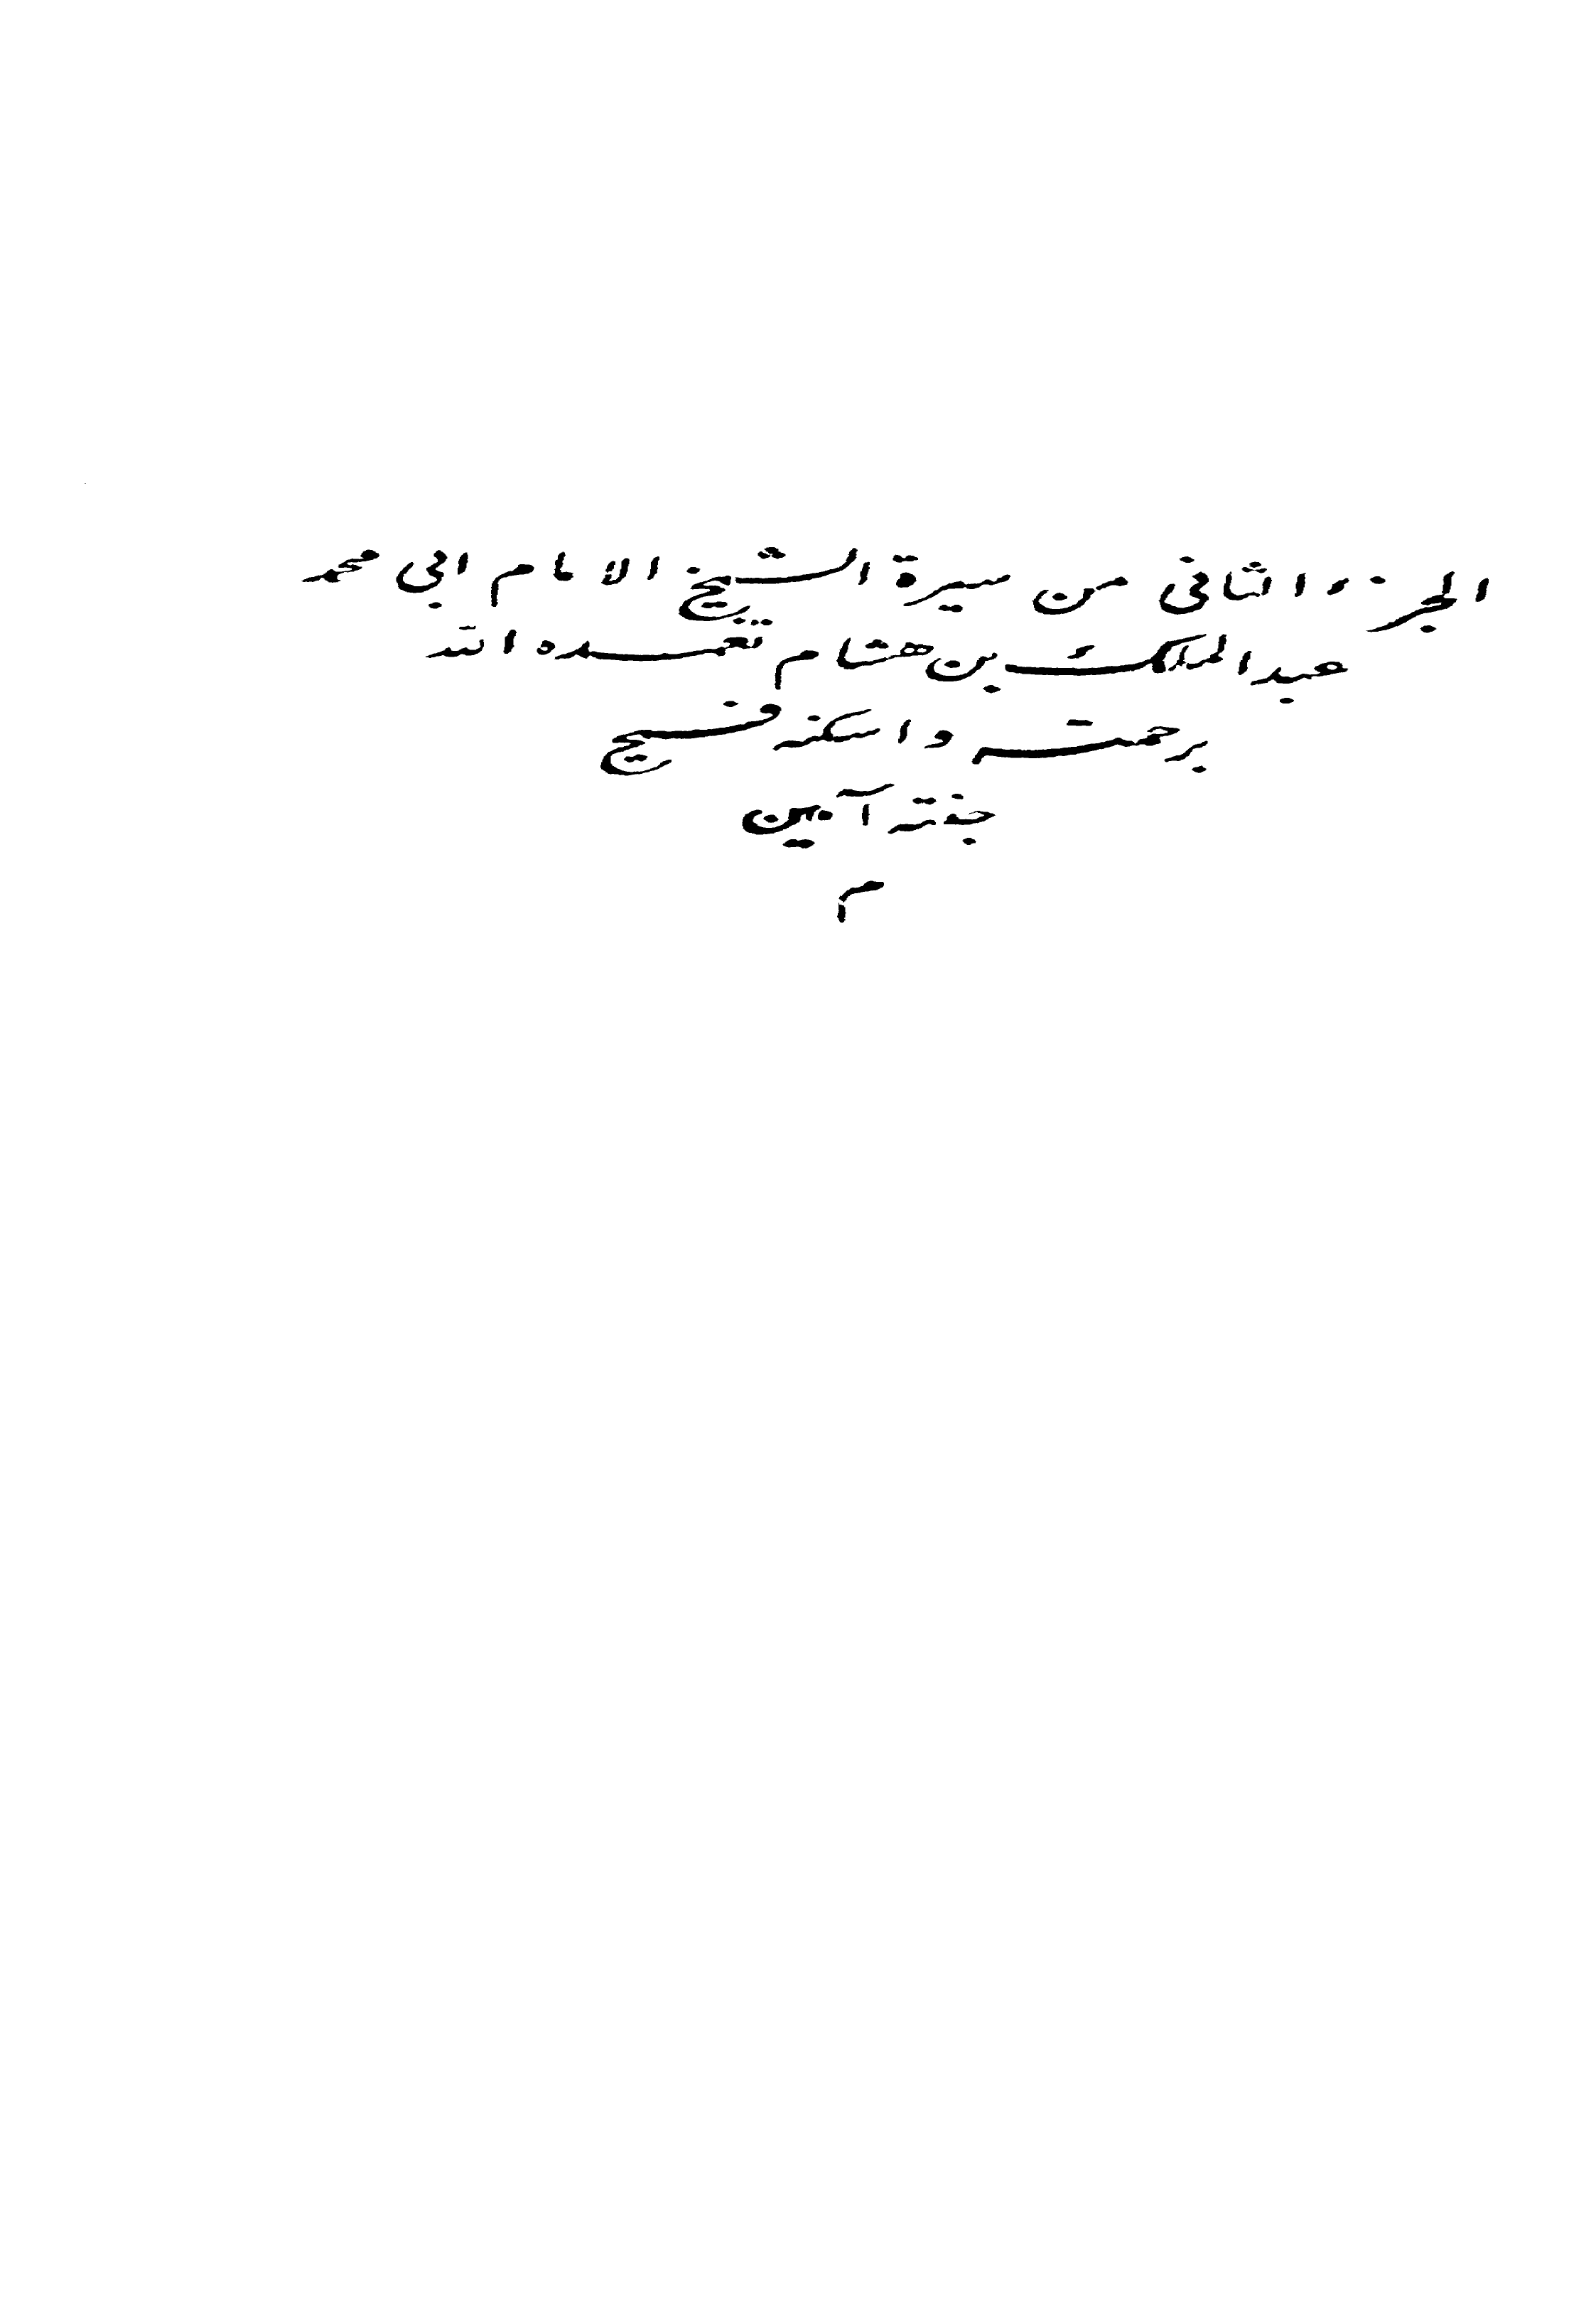 الجزء الثانى من سيرة الشيخ الامام ابى محمد
عبد الملك بن هشام تغمده الله
برحمته واسكنه فسيح
جنته آمين
م